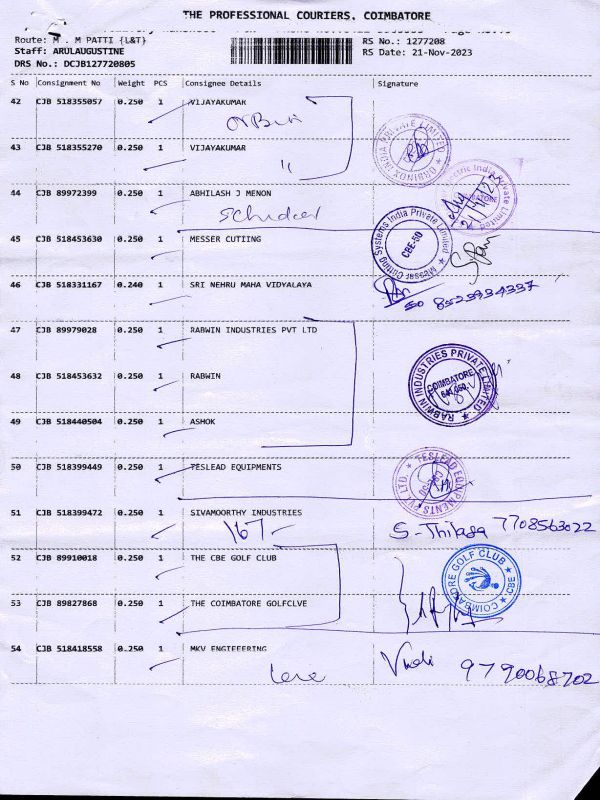 THE PROFESSIONAL COURIERS. COIMBATORE
Route: M . M PATTI {L&T}
RS No.: 1277208
Staff: ARULAUGUSTINE
RS Date: 21-Nov-2023
DRS No.: DCJB127720805
S No Consignment No Weight PCS Consignee Details Signature
42 CJB 518355057 0.250 1 VIJAYAKUMAR
43 CJB 518355270 0.250 1 VIJAYAKUMAR
"
44 CJB 89972399 0.250 1 ABHILASH J MENON
45 CJB 518453630 0.250 1 MESSER CUTTING
Messer Cutting Systems India Private Limited
CBE-50
46 CJB 518331167 0.240 1 SRI NEHRU MAHA VIDYALAYA
8523934337
47 CJB 89979028 0.250 1 RABWIN INDUSTRIES PVT LTD
48 CJB 518453632 0.250 1 RABWIN
RABWIN INDUSTRIES PRIVATE LIMITED
COIMBATORE
49 CJB 518440504 0.250 1 ASHOK
50 CJB 518399449 0.250 1 TESLEAD EQUIPMENTS
TESLEAD EQUIPMENTS PVT LTD.
51 CJB 518399472 0.250 1 SIVAMOORTHY INDUSTRIES
167 7708563022
52 CJB 89910018 0.250 1 THE CBE GOLF CLUB
COIMBATORE GOLF CLUB
CBE
53 CJB 89827868 0.250 1 THE COIMBATORE GOLFCLVE
54 CJB 518418558 0.250 1 MKV ENGIEEERING
9790068702